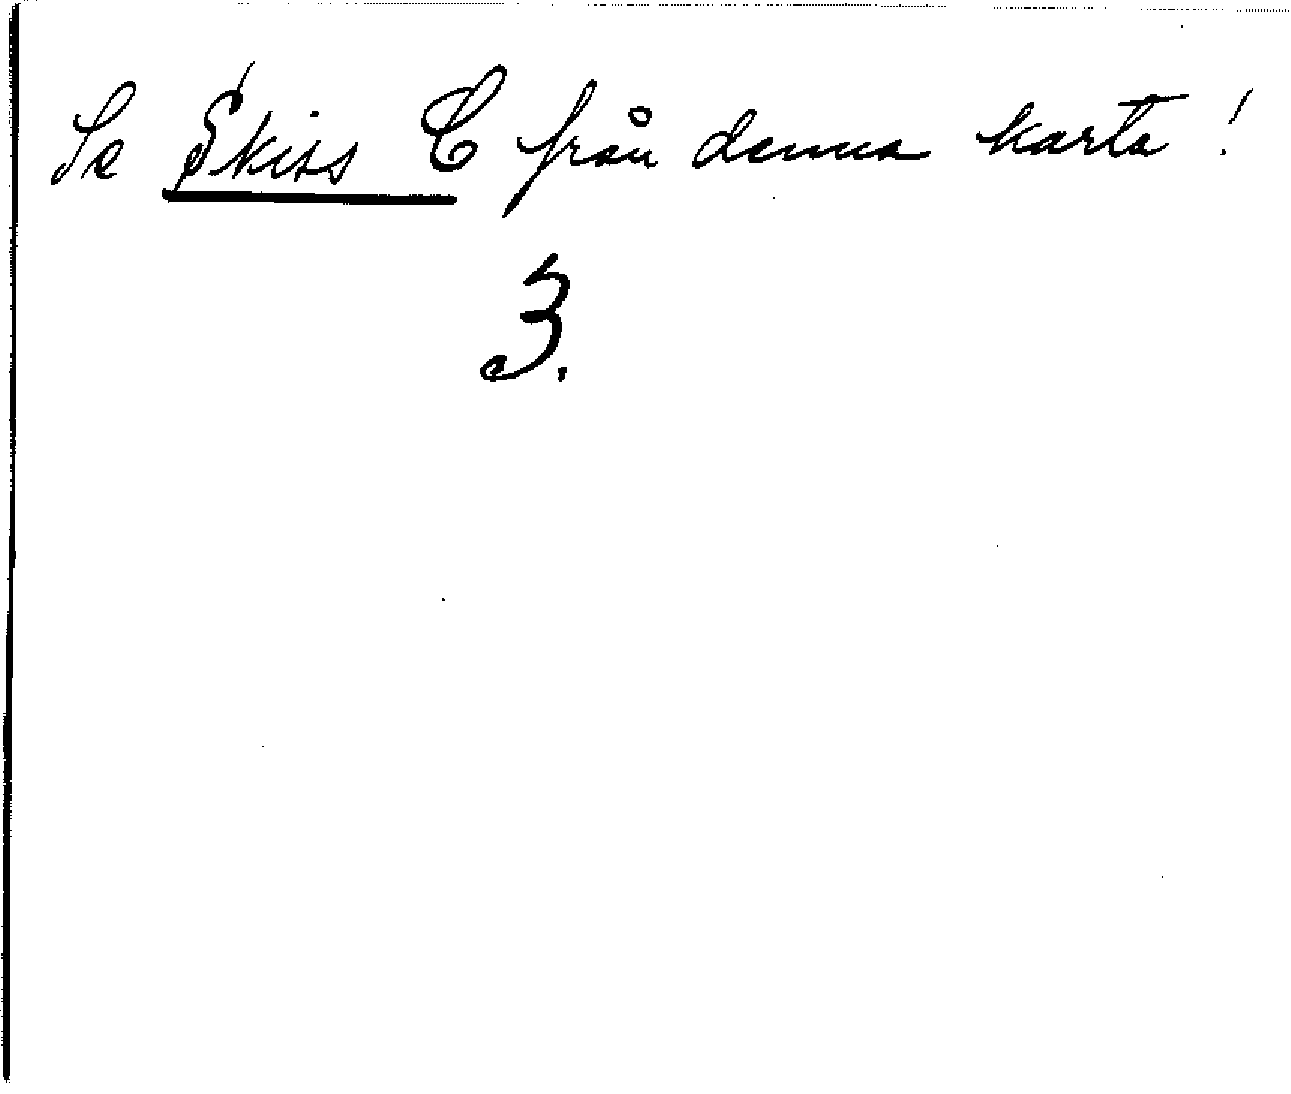 Se Skiss C från denna karta!
3.